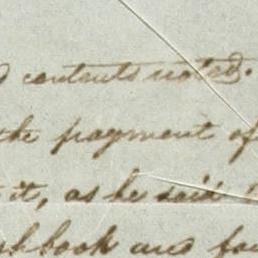 contents noted.
the payment of
it, as he said
book and